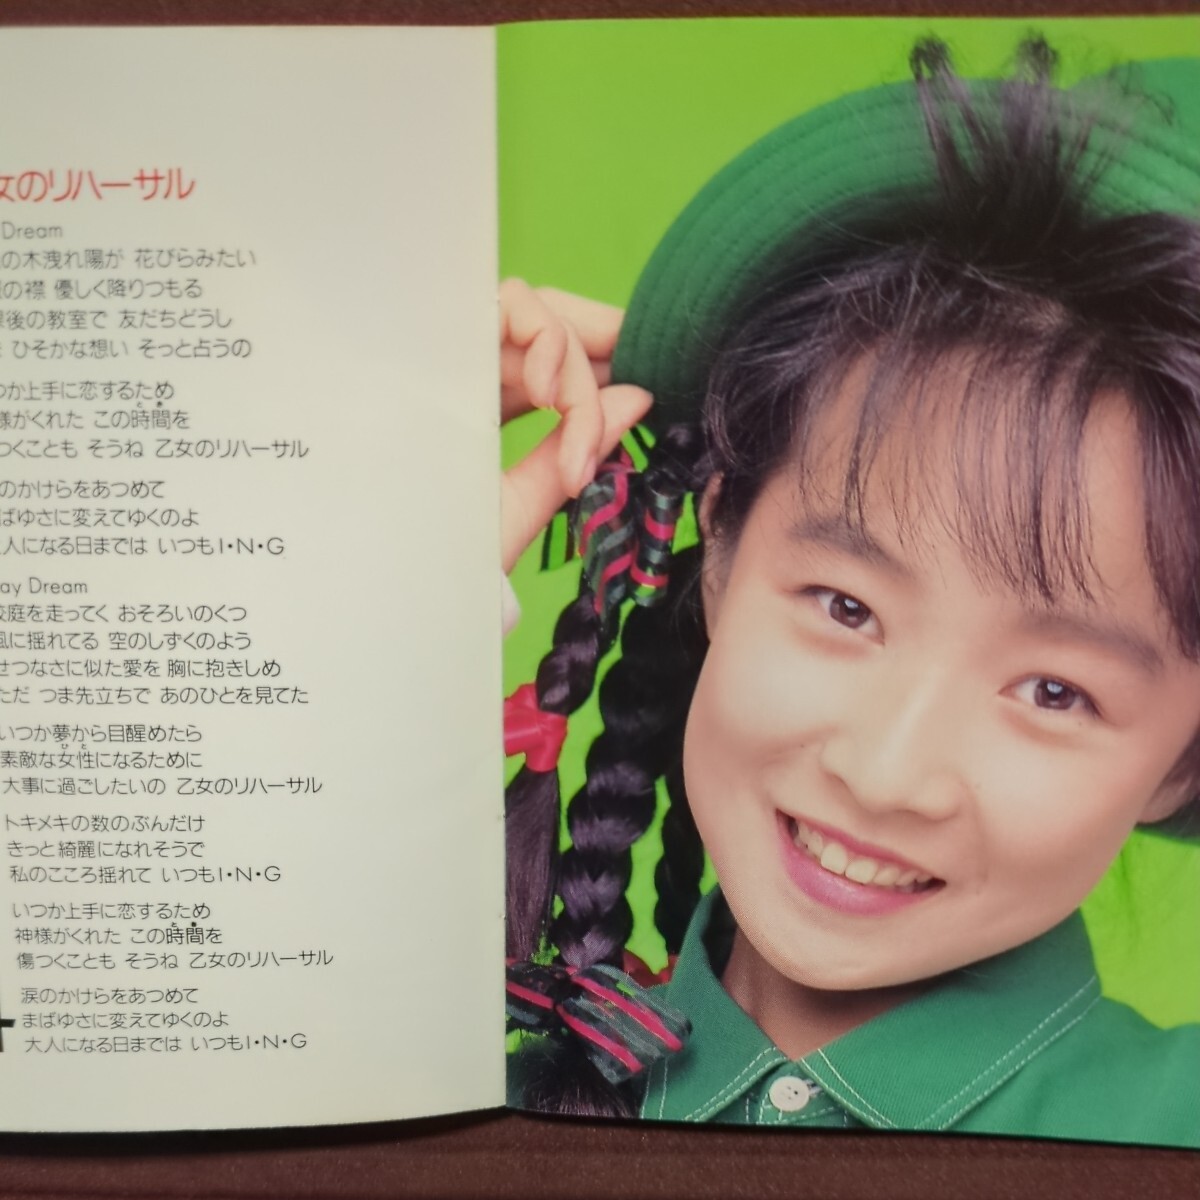 女のリハーサル
Dream
の木洩れ陽が 花びらみたい
の襟 優しく降りつもる
後の教室で 友だちどうし
ひそかな想い そっと占うの
つか上手に恋するため
様がくれた この時間を
とき
つくことも そうね 乙女のリハーサル
のかけらをあつめて
ばゆさに変えてゆくのよ
人になる日までは いつもI・N・G
ay Dream
校庭を走ってく おそろいのくつ
風に揺れてる 空のしずくのよう
せつなさに似た愛を 胸に抱きしめ
ただ つま先立ちで あのひとを見てた
いつか夢から目醒めたら
素敵な女性になるために
ひと
大事に過ごしたいの 乙女のリハーサル
トキメキの数のぶんだけ
きっと綺麗になれそうで
私のこころ揺れて いつもI・N・G
いつか上手に恋するため
神様がくれた この時間を
とき
傷つくことも そうね 乙女のリハーサル
涙のかけらをあつめて
まばゆさに変えてゆくのよ
大人になる日までは いつもI・N・G